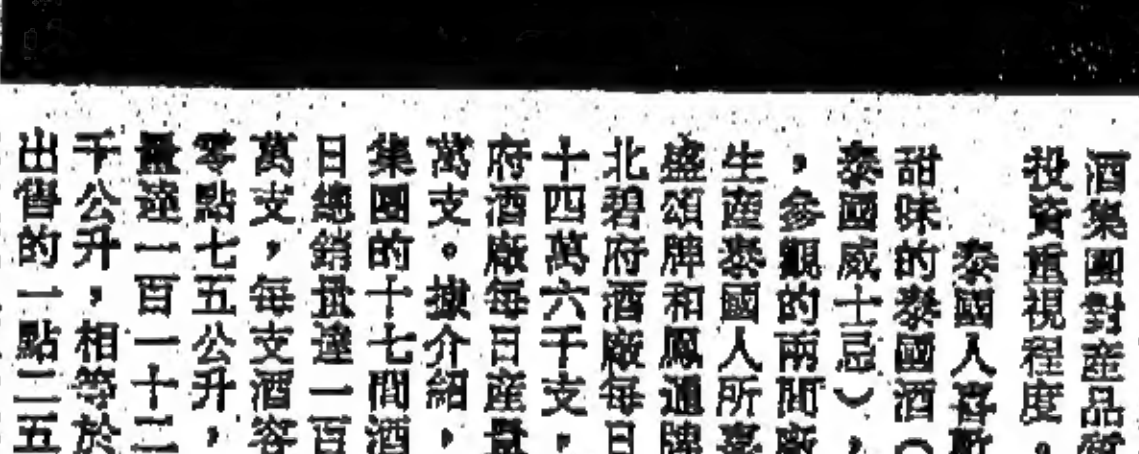 酒集團對産品質
投資重視程度。
泰國人喜歡
甜味的泰國酒（
泰國威士忌），
，參觀的兩間廠
生産泰國人所喜
盛頌牌和鳳通牌
北碧府酒廠每日
十四萬六千支，
府酒廠每日産量
萬支。據介紹，
集團的十七間酒
日總銷量達一百
萬支，每支酒容
零點七五公升，
量達一百一十二
千公升，相等於
出售的一點二五